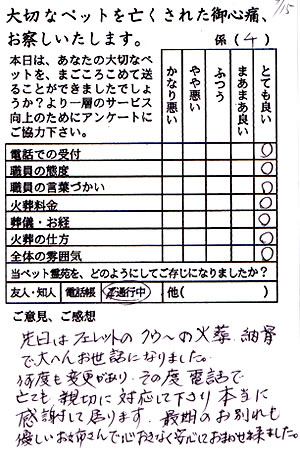 9/15
大切なペットを亡くされた御心痛、
お察しいたします。
係(4)
本日は、あなたの大切なペッ
トを、まごころこめて送
ることができましたでしょ
うか?より一層のサービス
向上のためにアンケートに
ご協力下さい。
かなり悪い
やや悪い
ふつう
まあまあ良い
とても良い
電話での受付 ○
職員の態度 ○
職員の言葉づかい ○
火葬料金 ○
葬儀・お経 ○
火葬の仕方 ○
全体の雰囲気 ○
当ペット霊苑を、どのようにしてご存じになりましたか?
友人・知人 電話帳 通行中 他( )
ご意見、ご感想
先日はフェレットのクゥ〜の火葬、納骨
で大へんお世話になりました。
何度も変更があり、その度電話で
とても親切に対応して下り本当に
感謝して居ります。最期のお別れも
優しいお姉さんで心おきなく安心しておまかせ出来ました。